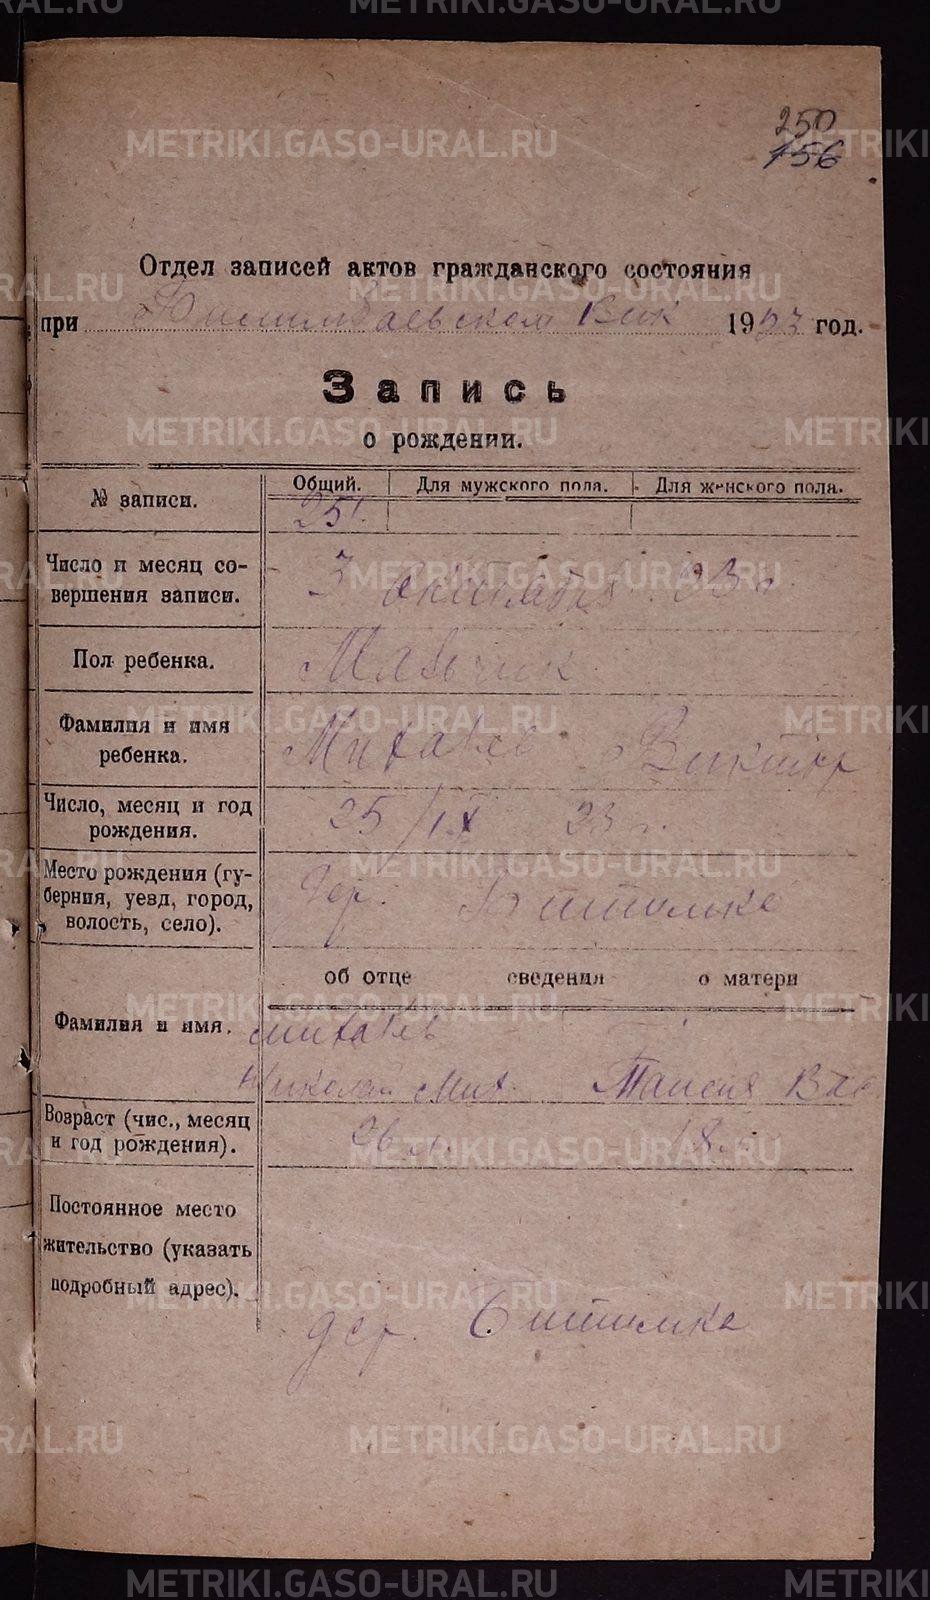 METRIKI.GASO-URAL.RU
250
156
Отдел записей актов гражданского состояния
при Билимбаевском Вик 1923 год.
Запись
о рождении.
№ записи.
Общий. Для мужского пола. Для женского пола.
251.
Число и месяц со-
вершения записи.
3 октября 23 г
Пол ребенка.
Мальчик
Фамилия и имя
ребенка.
Михалев Виктор
Число, месяц и год
рождения.
25/IX 23 г.
Место рождения (гу-
берния, уезд, город,
волость, село).
дер. Битимка
об отце сведения о матери
Фамилия и имя.
Михалев
Николай Мих. Таисия Вас
Возраст (чис., месяц
и год рождения).
26 л. 18 л
Постоянное место
жительство (указать
подробный адрес).
дер. Битимка